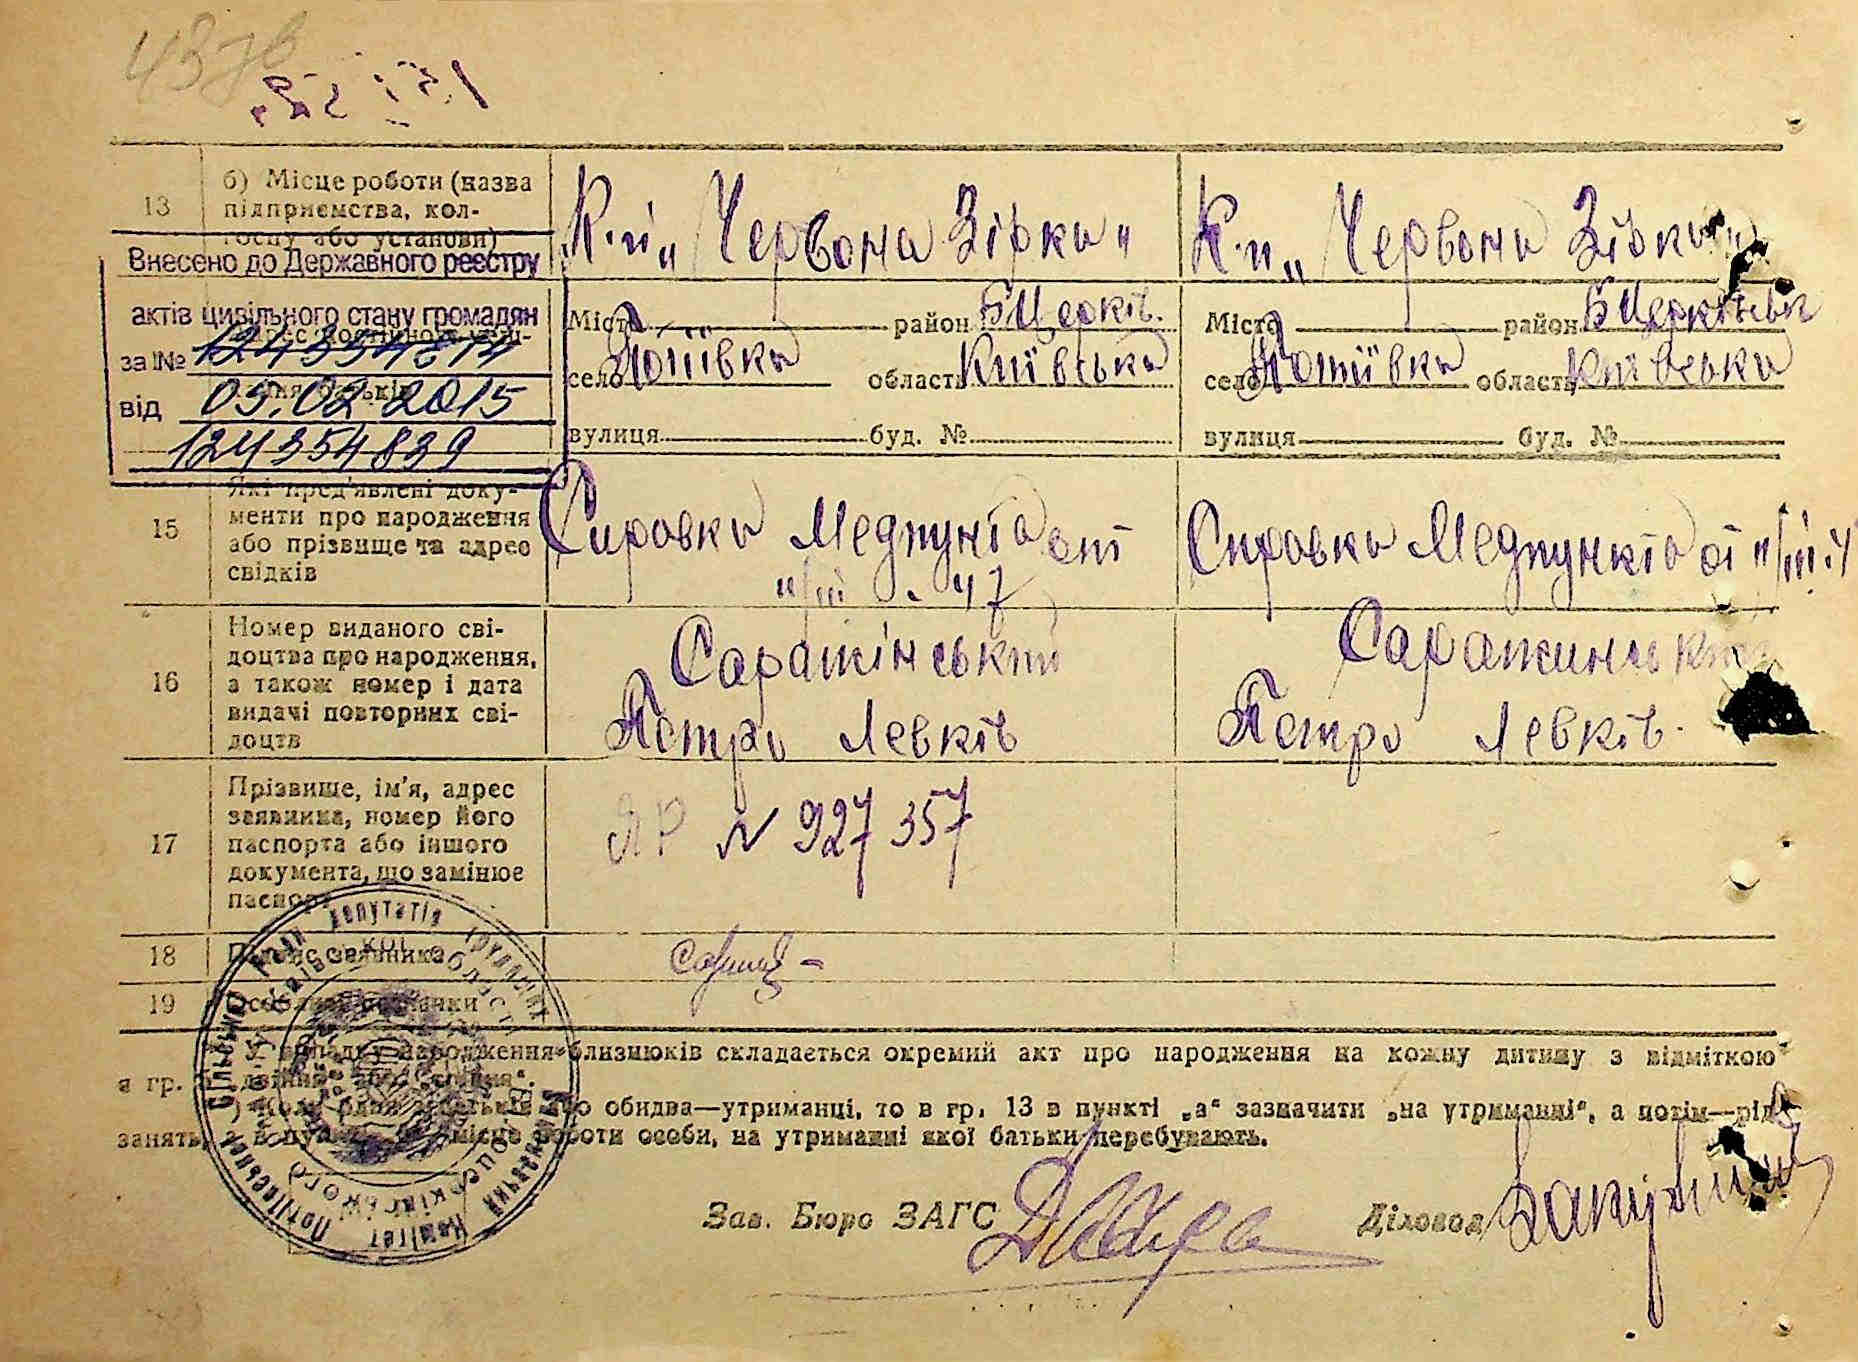 437в
13
б) Місце роботи (назва
підприємства, кол-
госпу або установи)
К-п „Червона Зірка"
К-п „Червона Зірка"
Внесено до Державного реєстру
актів цивільного стану громадян
за № 1243548
від 05.02.2015
124354839
Місто район Б Церків.
село Потіївка область Київська
вулиця буд. №
Місто район Б Церківськ
село Потіївка область Київська
вулиця буд. №
15
Які пред'явлені доку-
менти про народження
або прізвище та адрес
свідків
Справка Медпункта от
"/III . 47
Справка Медпункта от "/III.4
16
Номер виданого сві-
доцтва про народження,
а також номер і дата
видачі повторних сві-
доцтв
Саражінський
Петро Левків
Саражинський
Петро Левків.
17
Прізвище, ім'я, адрес
заявника, номер його
паспорта або іншого
документа, що замінює
паспорт
ЯР № 927357
18
Підпис заявника
19
Особливі відмітки
У випадку народження близнюків складається окремий акт про народження на кожну дитину з відміткою
в гр. „двійня" або „трійня".
Коли обидва—утриманці, то в гр. 13 в пункті „а" зазначити „на утриманні", а потім—рід
занять, в пункті місце роботи особи, на утриманні якої батьки перебувають.
Зав. Бюро ЗАГС
Діловод
Потіївської сільської Ради депутатів трудящих
Виконавчий Комітет
Київської області